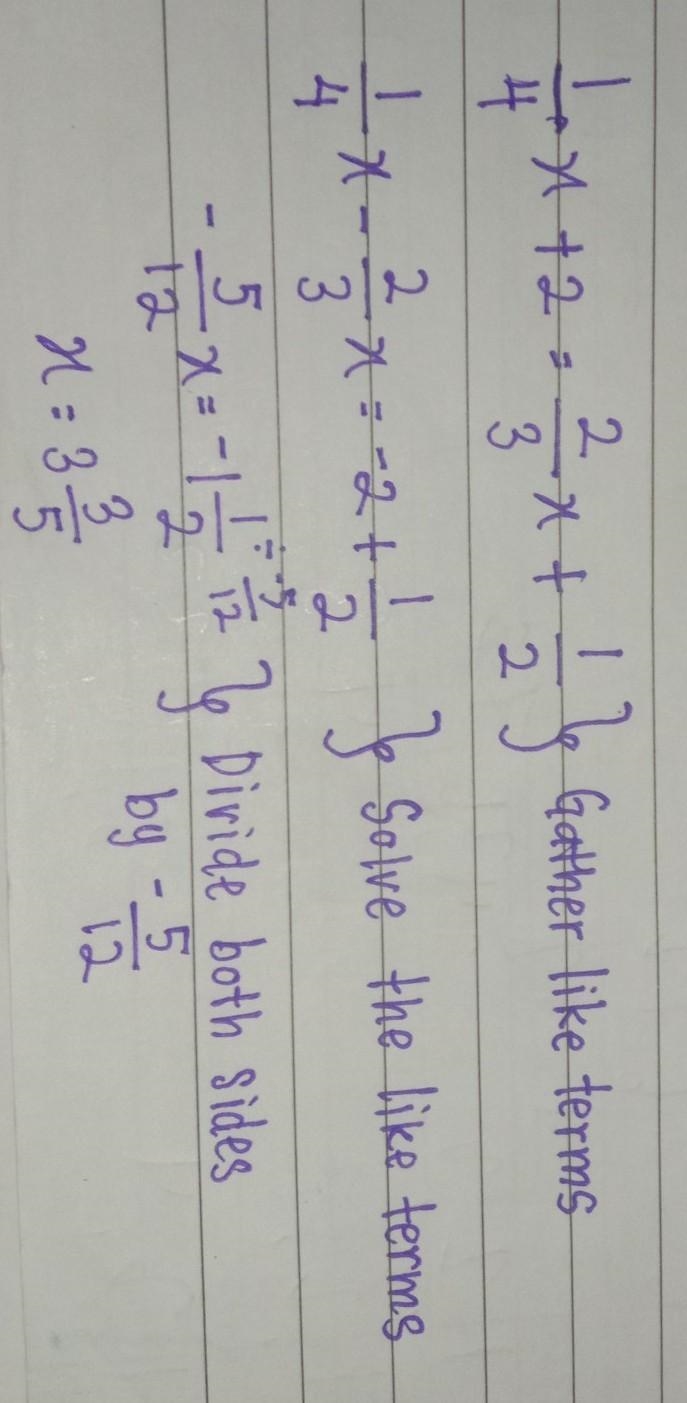 1/4 x + 2 = 2/3 x + 1/2 } Gather like terms
1/4 x - 2/3 x = -2 + 1/2 } Solve the like terms
- 5/12 x = -1 1/2 ÷ - 5/12 } Divide both sides
by - 5/12
x = 3 3/5